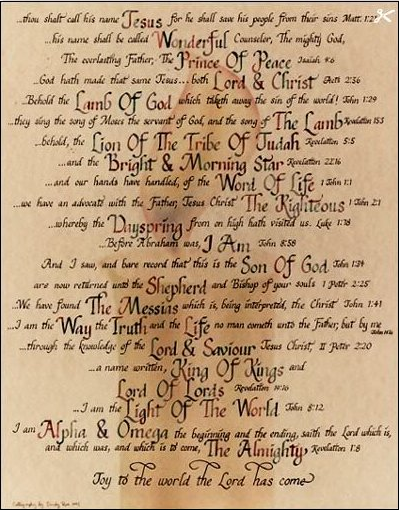 ...thou shalt call his name Jesus for he shall save his people from their sins Matt. 1:21
...his name shall be called Wonderful Counselor, The mighty God,
The everlasting Father, The Prince Of Peace Isaiah 9:6
...God hath made that same Jesus...both Lord & Christ Acts 2:36
...Behold the Lamb Of God which taketh away the sin of the world! John 1:29
...they sing the song of Moses the servant of God, and the song of The Lamb Revelation 15:3
...behold, the Lion Of The Tribe Of Judah Revelation 5:5
...and the Bright & Morning Star Revelation 22:16
...and our hands have handled, of the Word Of Life 1 John 1:1
...we have an advocate with the Father, Jesus Christ The Righteous 1 John 2:1
...whereby the Dayspring from on high hath visited us. Luke 1:78
...Before Abraham was, I Am John 8:58
And I saw, and bare record that this is the Son Of God John 1:34
are now returned unto the Shepherd and Bishop of your souls 1 Peter 2:25
...We have found The Messias which is, being interpreted, the Christ John 1:41
...I am the Way the Truth and the Life no man cometh unto the Father, but by me John 14:6
...through the knowledge of the Lord & Saviour Jesus Christ, II Peter 2:20
...a name written, King Of Kings and
Lord Of Lords Revelation 19:16
...I am the Light Of The World John 8:12
I am Alpha & Omega the beginning and the ending, saith the Lord which is,
and which was, and which is to come, The Almighty Revelation 1:8
Joy to the world the Lord has come
Calligraphy by